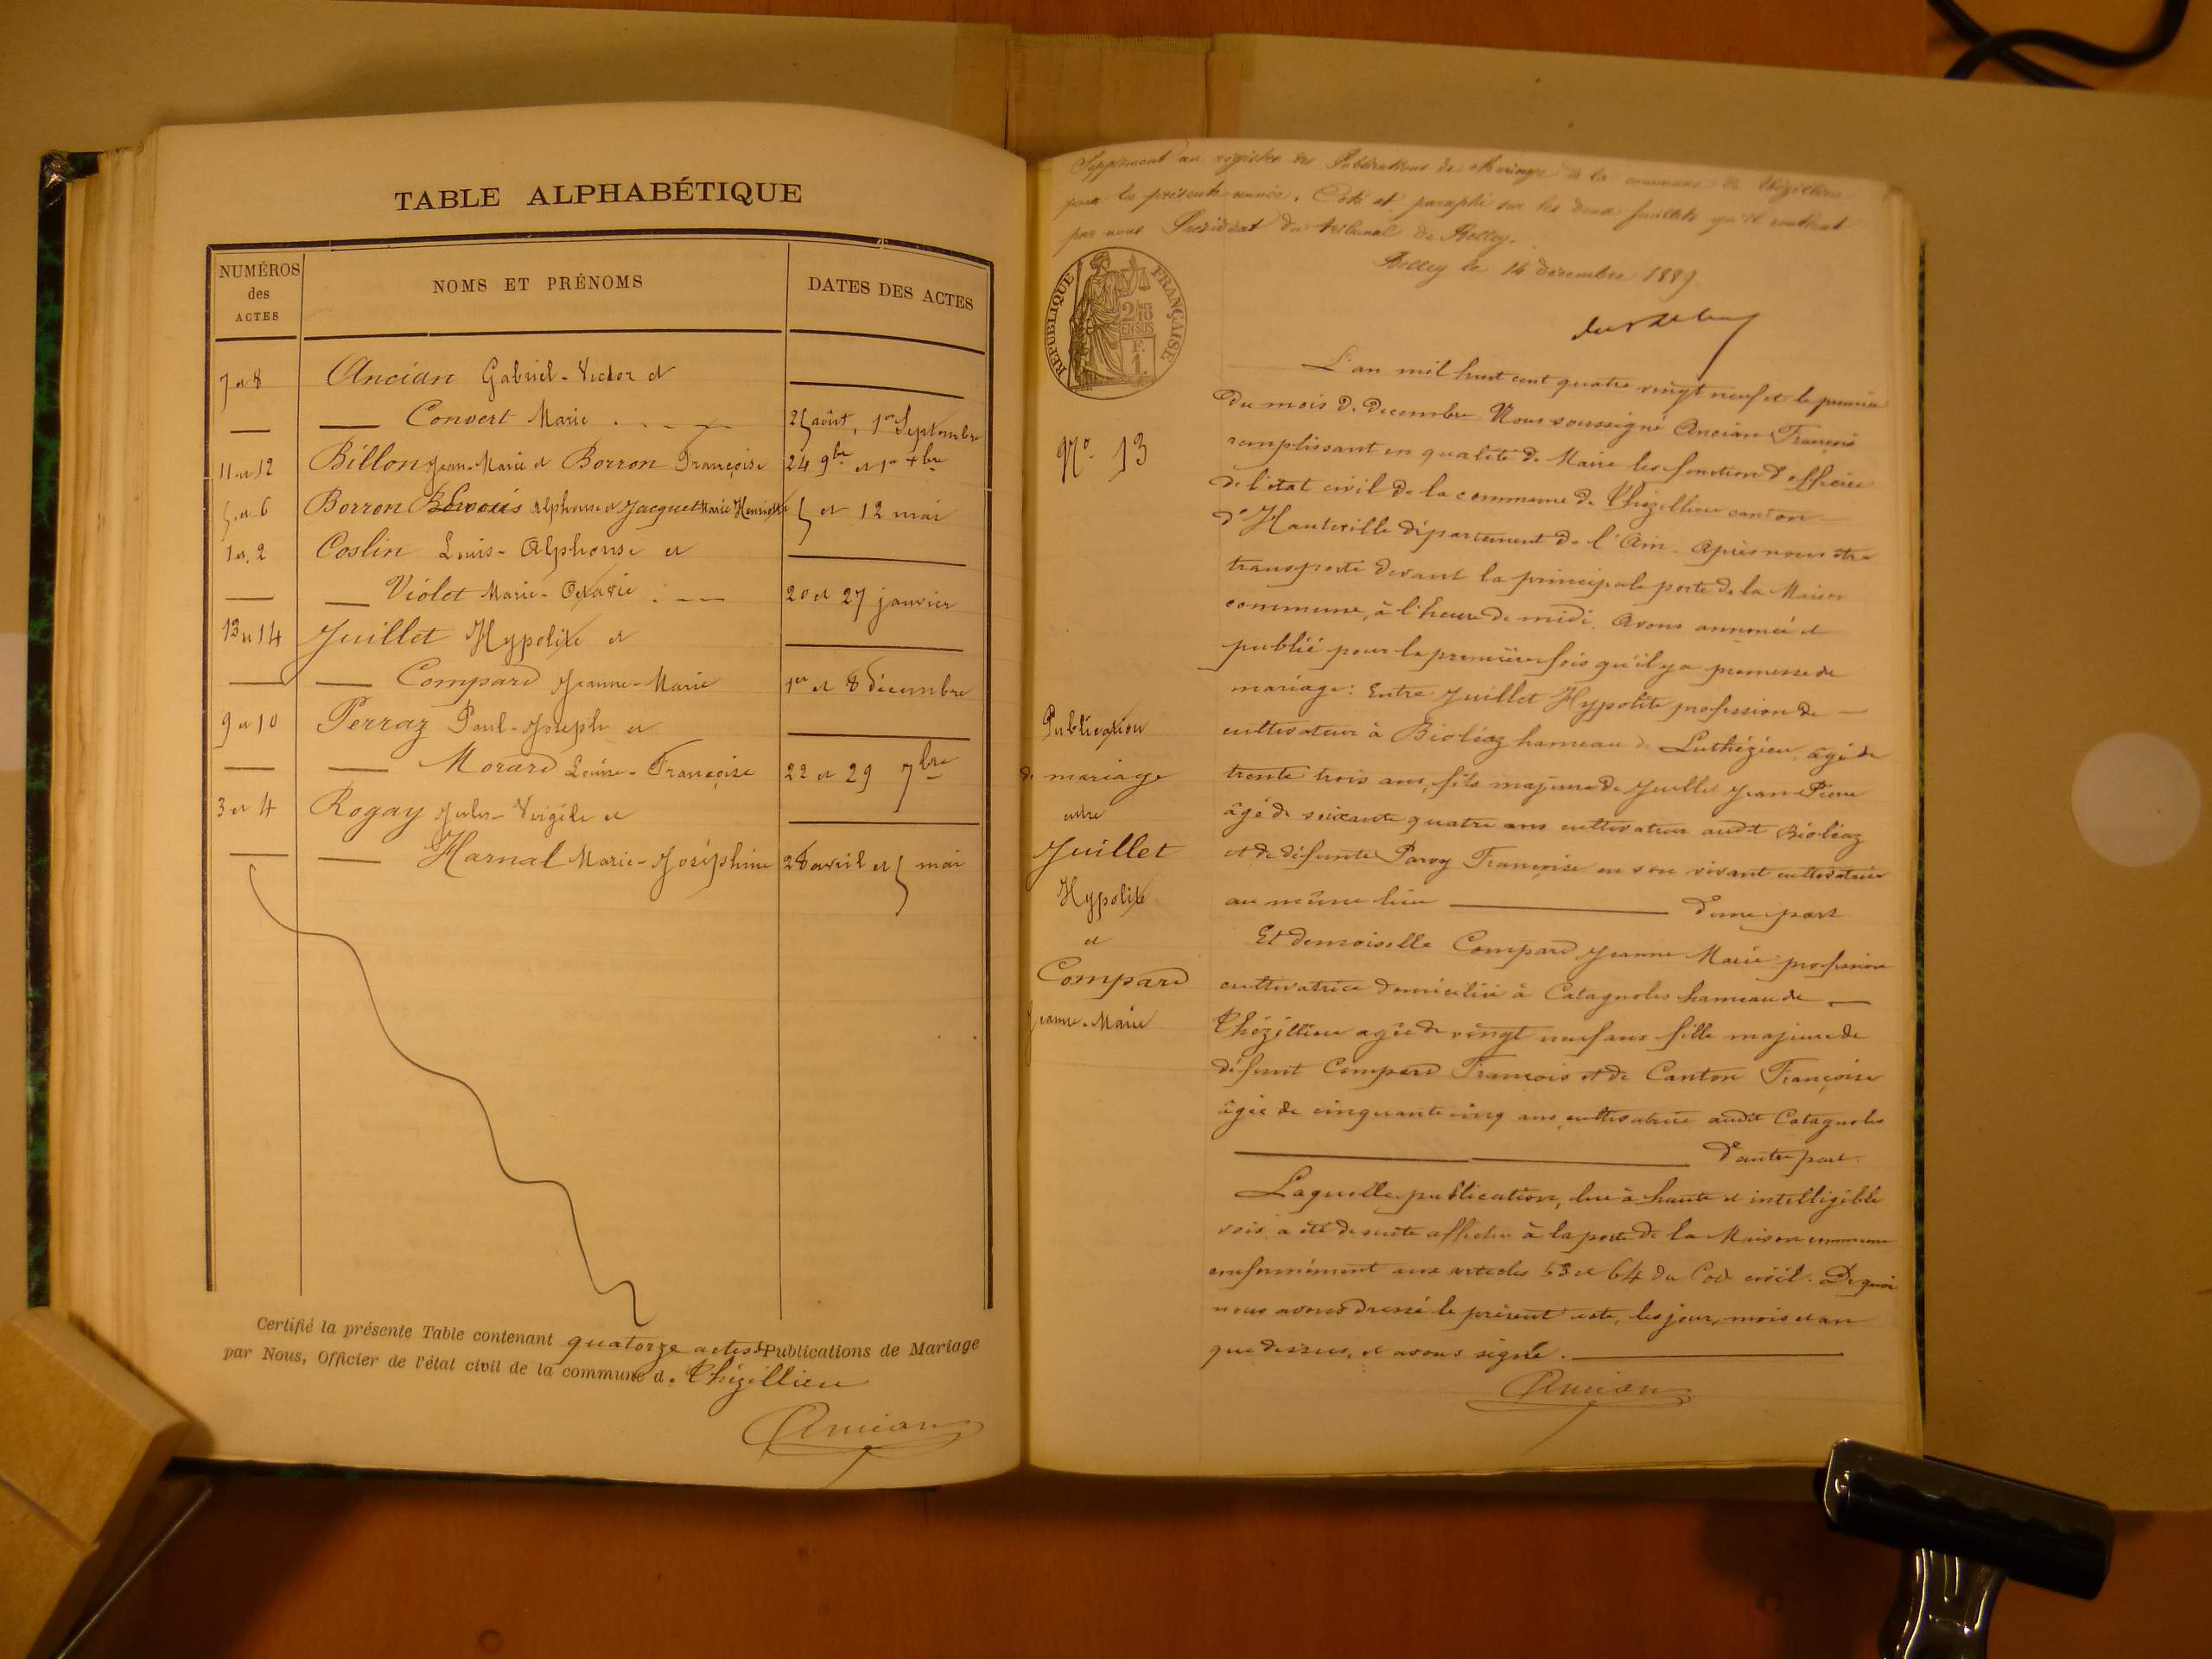 TABLE ALPHABÉTIQUE
NUMÉROS des ACTES
NOMS ET PRÉNOMS
DATES DES ACTES
7 et 8 Ancian Gabriel-Victor et
Convert Marie 25 août, 1er Septembre
11 et 12 Billon Jean-Marie et Borron Françoise 24 9bre et 1er Xbre
5 et 6 Borron Alphonse et Jacquet Marie Henriette 5 et 12 mai
1 et 2 Coslin Louis-Alphonse et
Violet Marie-Octavie 20 et 27 janvier
13 et 14 Juillet Hypolite et
Compard Jeanne-Marie 1er et 8 décembre
9 et 10 Perraz Paul-Joseph et
Morard Louise-Françoise 22 et 29 7bre
3 et 4 Rogay Jules-Virgile et
Harnal Marie-Joséphine 28 avril et 5 mai
Certifié la présente Table contenant quatorze actes d Publications de Mariage
par Nous, Officier de l'état civil de la commune d. Thézillieu
Ancian
Supplément au registre des Publications de Mariage de la commune de Thézillieu
pour la présente année. Coté et paraphé sur les deux feuillets qu'il contient
par nous Président du tribunal de Belley.
Belley le 14 décembre 1889
RÉPUBLIQUE FRANÇAISE
L'an mil huit cent quatre vingt neuf et le premier
du mois de decembre Nous soussigné Ancian François
remplissant en qualité de Maire les fonction d'officier
de l'état civil de la commune de Thézillieu canton
d'Hauteville département de l'Ain. Après nous être
transporté devant la principale porte de la Maison
commune, à l'heure de midi. Avons annoncé et
publié pour la première fois qu'il y a promesse de
mariage: Entre Juillet Hypolite profession de
cultivateur à Bioléaz hameau de Luthézieu, âgé de
trente trois ans, fils majeur de Juillet Jean Pierre
âgé de soixante quatre ans cultivateur audit Bioléaz
et de défunte Paroy Françoise en son vivant cultivatrice
au même lieu d'une part
Et demoiselle Compard Jeanne Marie profession
cultivatrice domiciliée à Catagnoles hameau de
Thézillieu agée de vingt neuf ans fille majeure de
défunt Compard François et de Canton Françoise
âgée de cinquante cinq ans cultivatrice audit Catagnoles
d'autre part.
Laquelle publication, lue à haute et intelligible
voix, a été de suite affichée à la porte de la Maison commune
conformément aux articles 63 et 64 du Code civil. De quoi
nous avons dressé le présent acte, les jour, mois et an
que dessus, et avons signé.
Ancian
No 13
Publication
de mariage
entre
Juillet
Hypolite
et
Compard
Jeanne-Marie